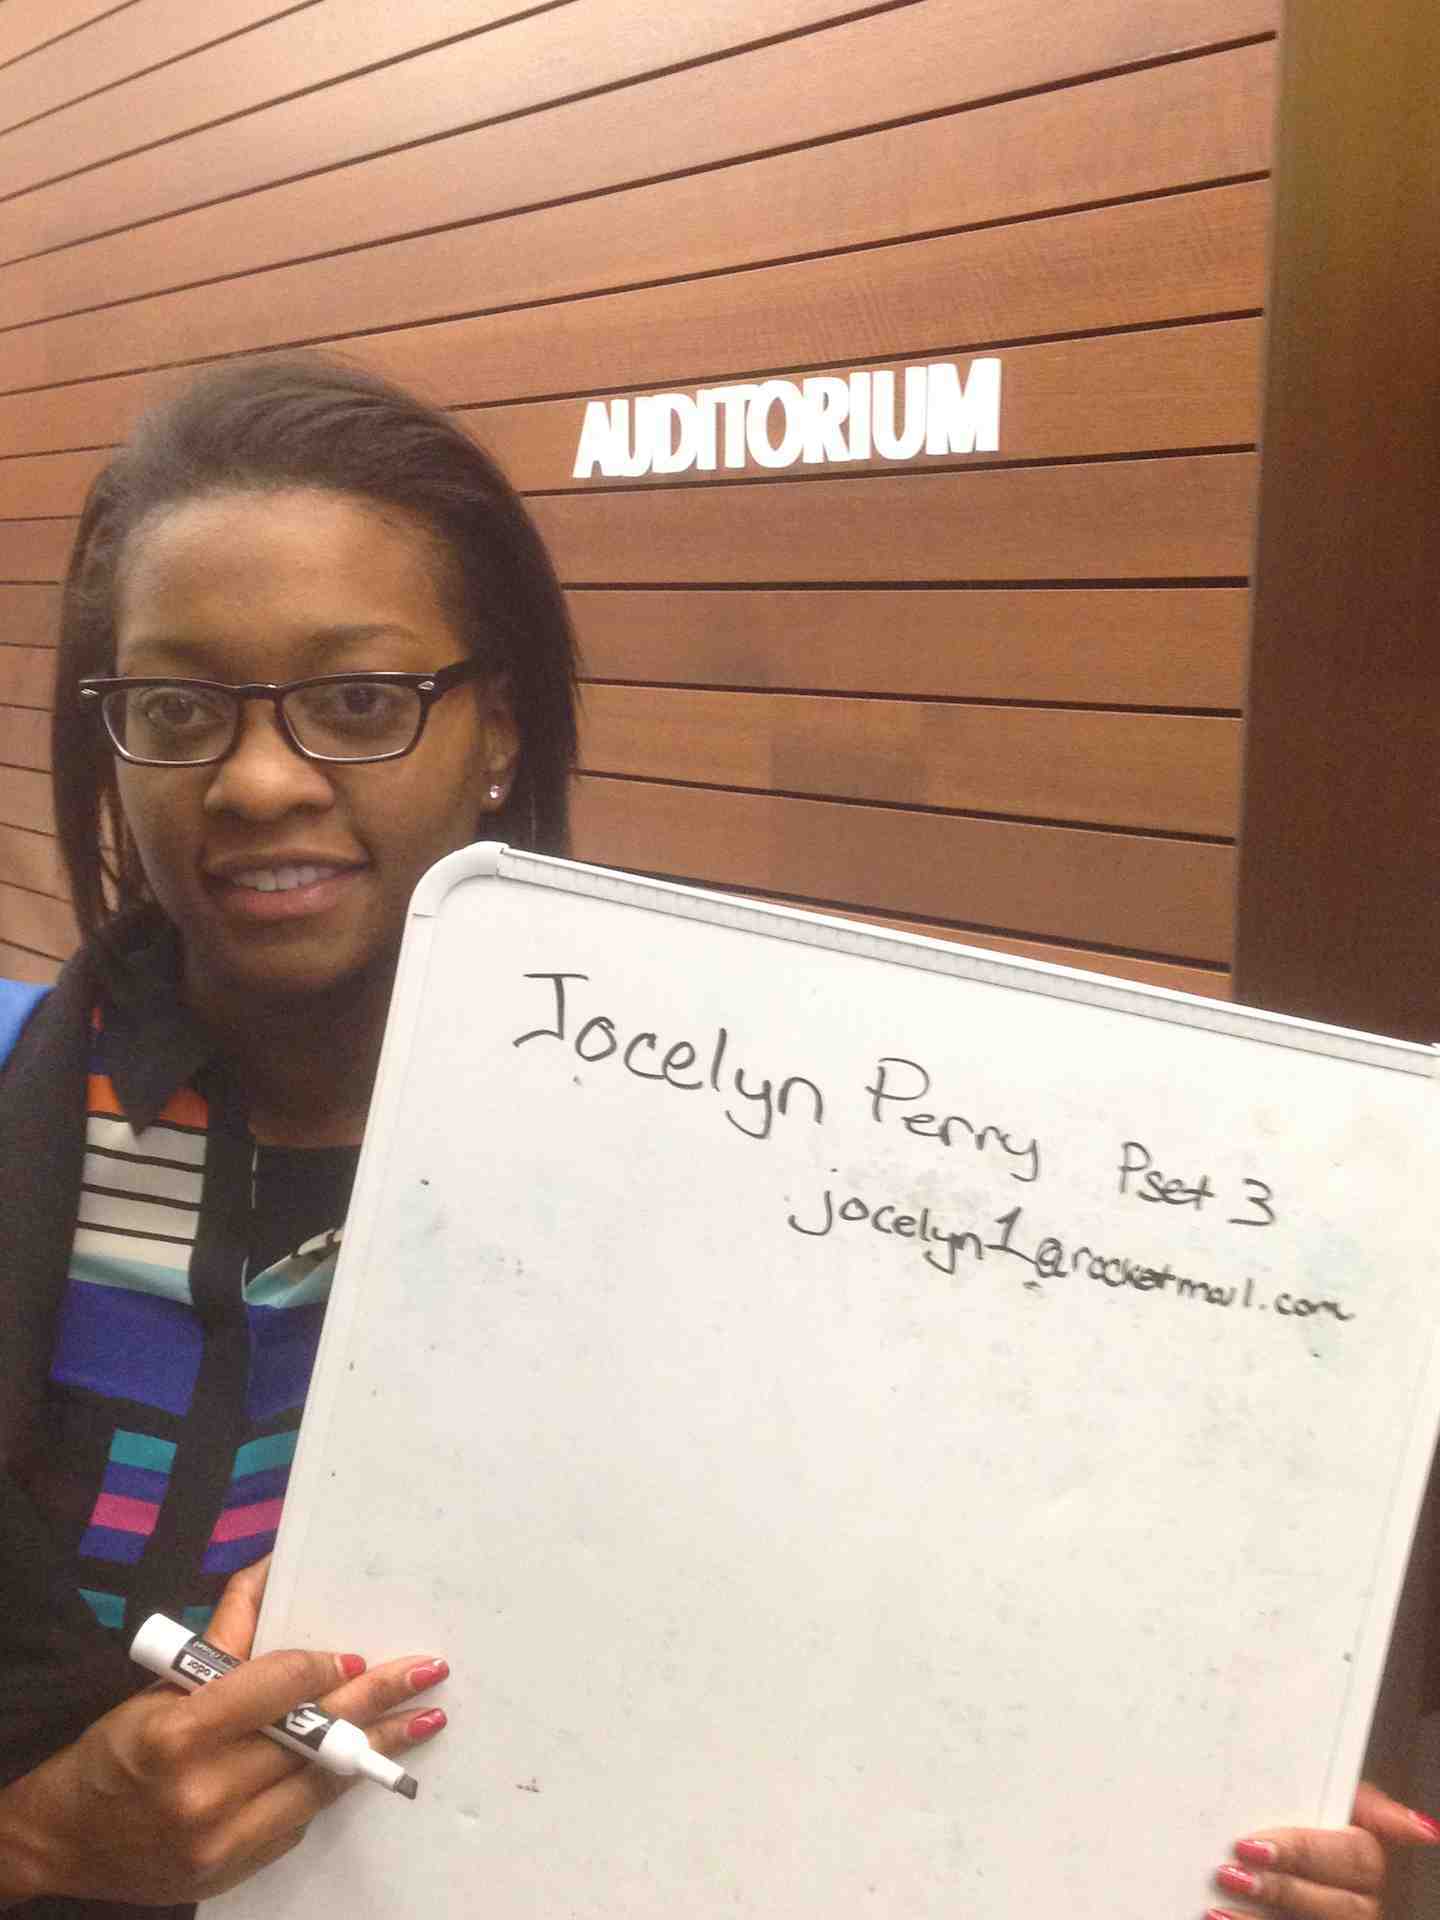 AUDITORIUM
Jocelyn Perry Pset 3
jocelyn1@rocketmail.com
odor